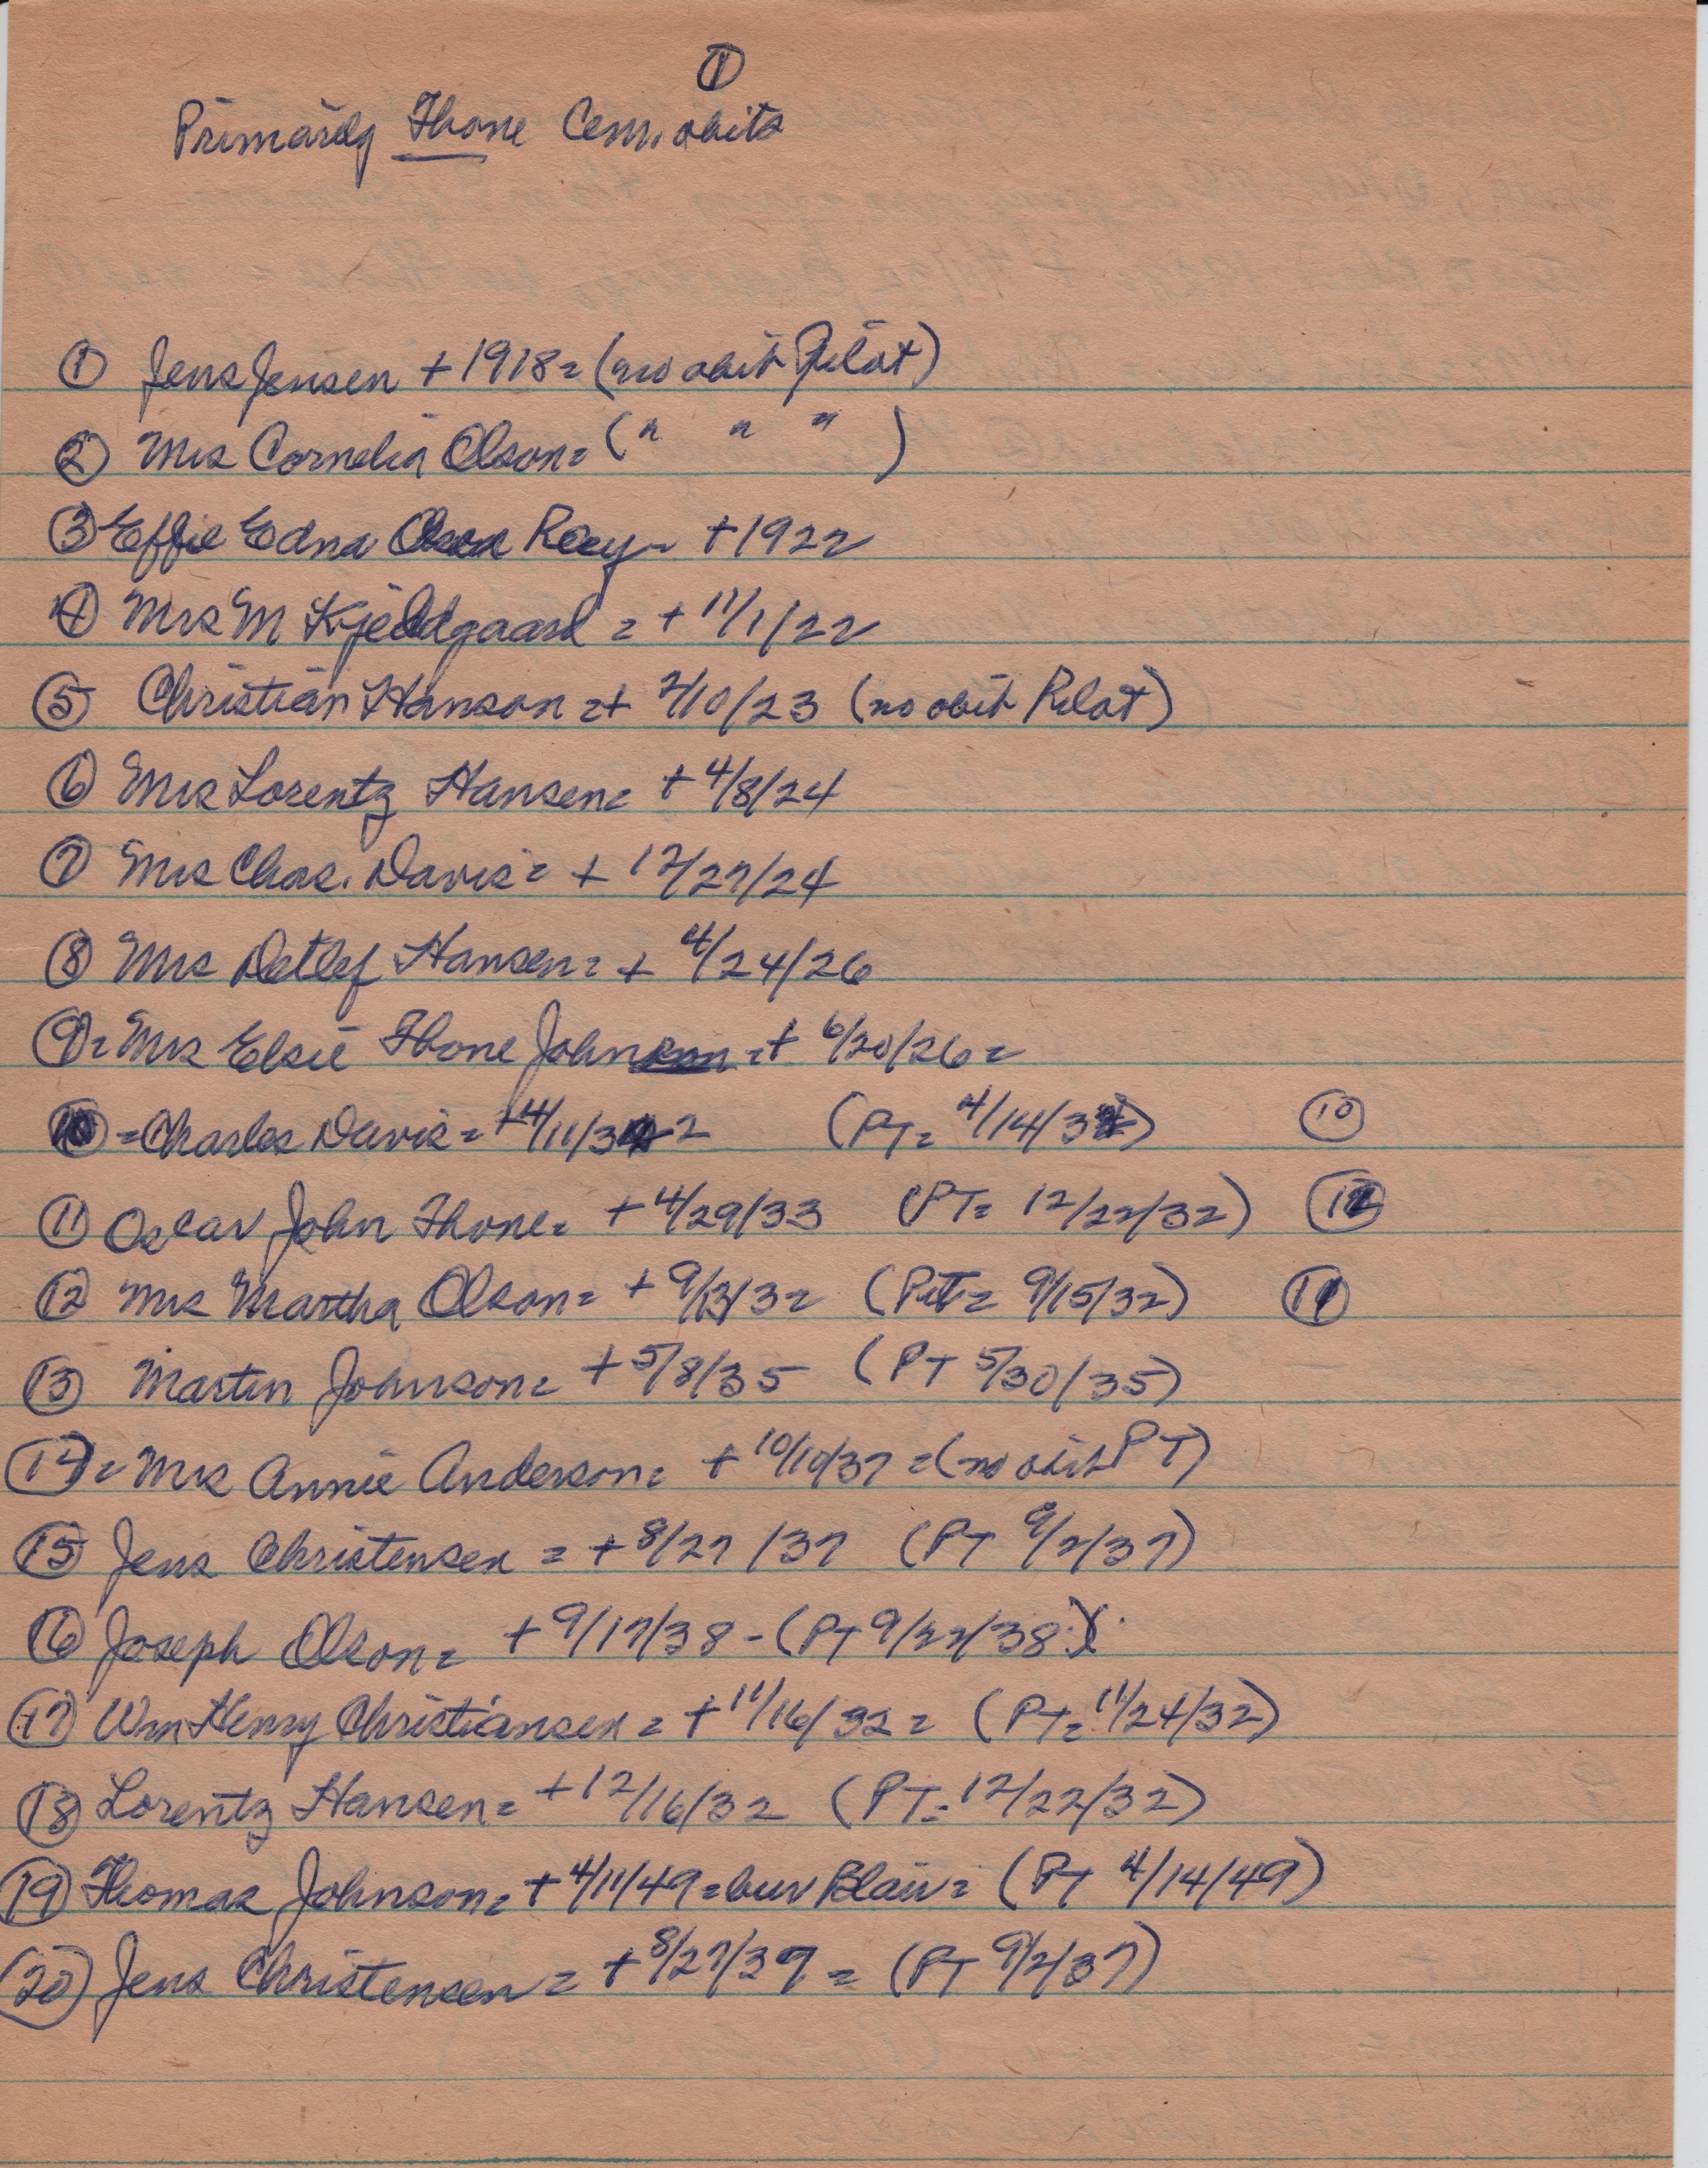 ①
Primarily Thone Cem. obits
① Jens Jensen + 1918 = (no obit Pilot)
② Mrs Cornelia Olson = ( " " " )
③ Effie Edna Olson Roey = + 1922
④ Mrs M Kjeldgaard = + 11/1/22
⑤ Christian Hanson = + 2/10/23 (no obit Pilot)
⑥ Mrs Lorentz Hansen = + 4/8/24
⑦ Mrs Chas. Davis = + 12/27/24
⑧ Mrs Detlef Hansen = + 4/24/26
⑨ = Mrs Elsie Thone Johnson = + 6/20/26 =
⑩ = Charles Davis = + 4/11/32 (PT = 4/14/32) ⑩
⑪ Oscar John Thone = + 4/29/33 (PT = 12/22/32) ⑫
⑫ Mrs Martha Olson = + 9/13/32 (PT = 9/15/32) ⑪
⑬ Martin Johnson = + 5/8/35 (PT 5/30/35)
⑭ = Mrs Annie Anderson = + 10/10/37 = (no obit PT)
⑮ Jens Christensen = + 8/27/37 (PT 9/2/37)
⑯ Joseph Olson = + 9/17/38 - (PT 9/22/38)
⑰ Wm Henry Christiansen = + 11/16/32 = (PT = 11/24/32)
⑱ Lorentz Hansen = + 12/16/32 (PT = 12/22/32)
⑲ Thomas Johnson = + 4/11/49 = bur Blair = (PT 4/14/49)
⑳ Jens Christensen = + 8/27/39 = (PT 9/2/37)